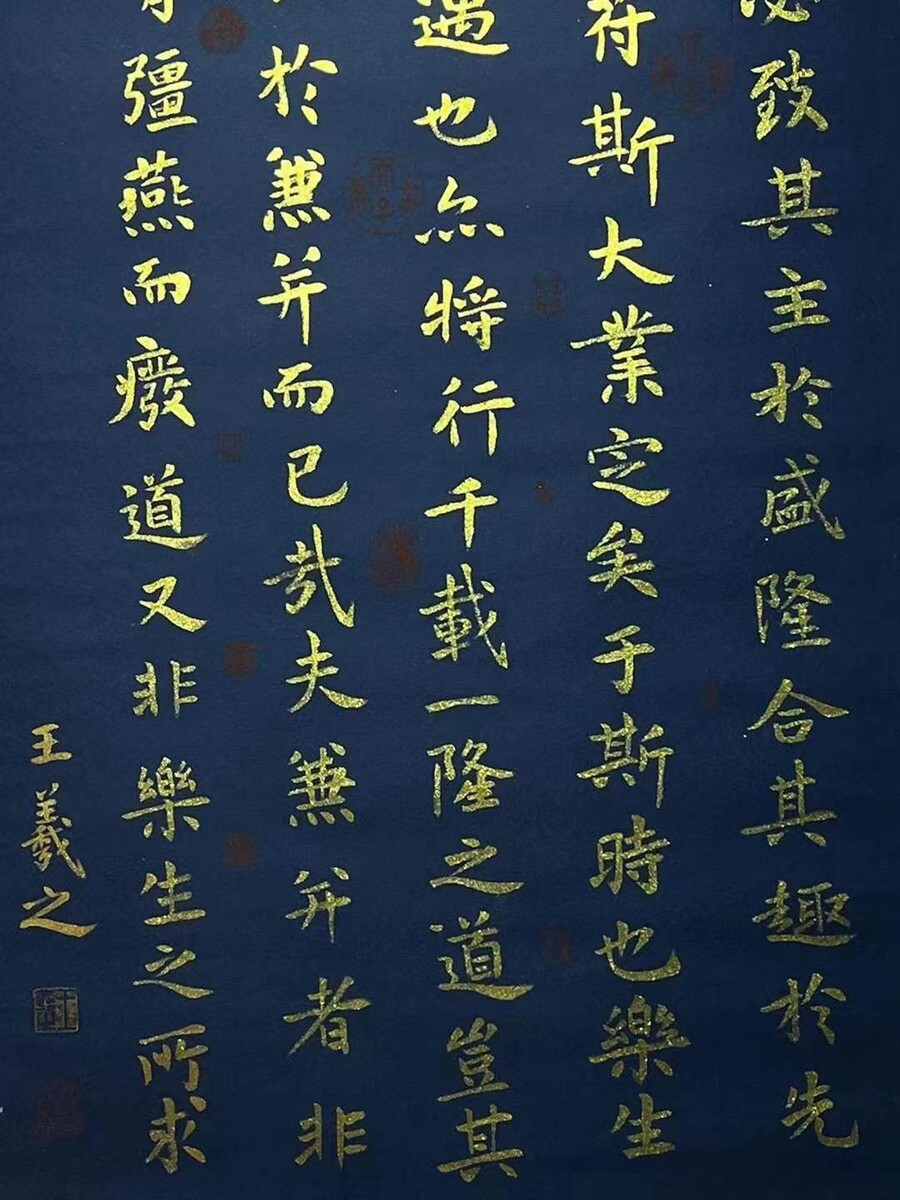 必致其主於盛隆合其趣於先
符斯大業定矣于斯時也樂生
遇也亦將行千載一隆之道豈其
於兼并而已哉夫兼并者非
彊燕而廢道又非樂生之所求
王羲之